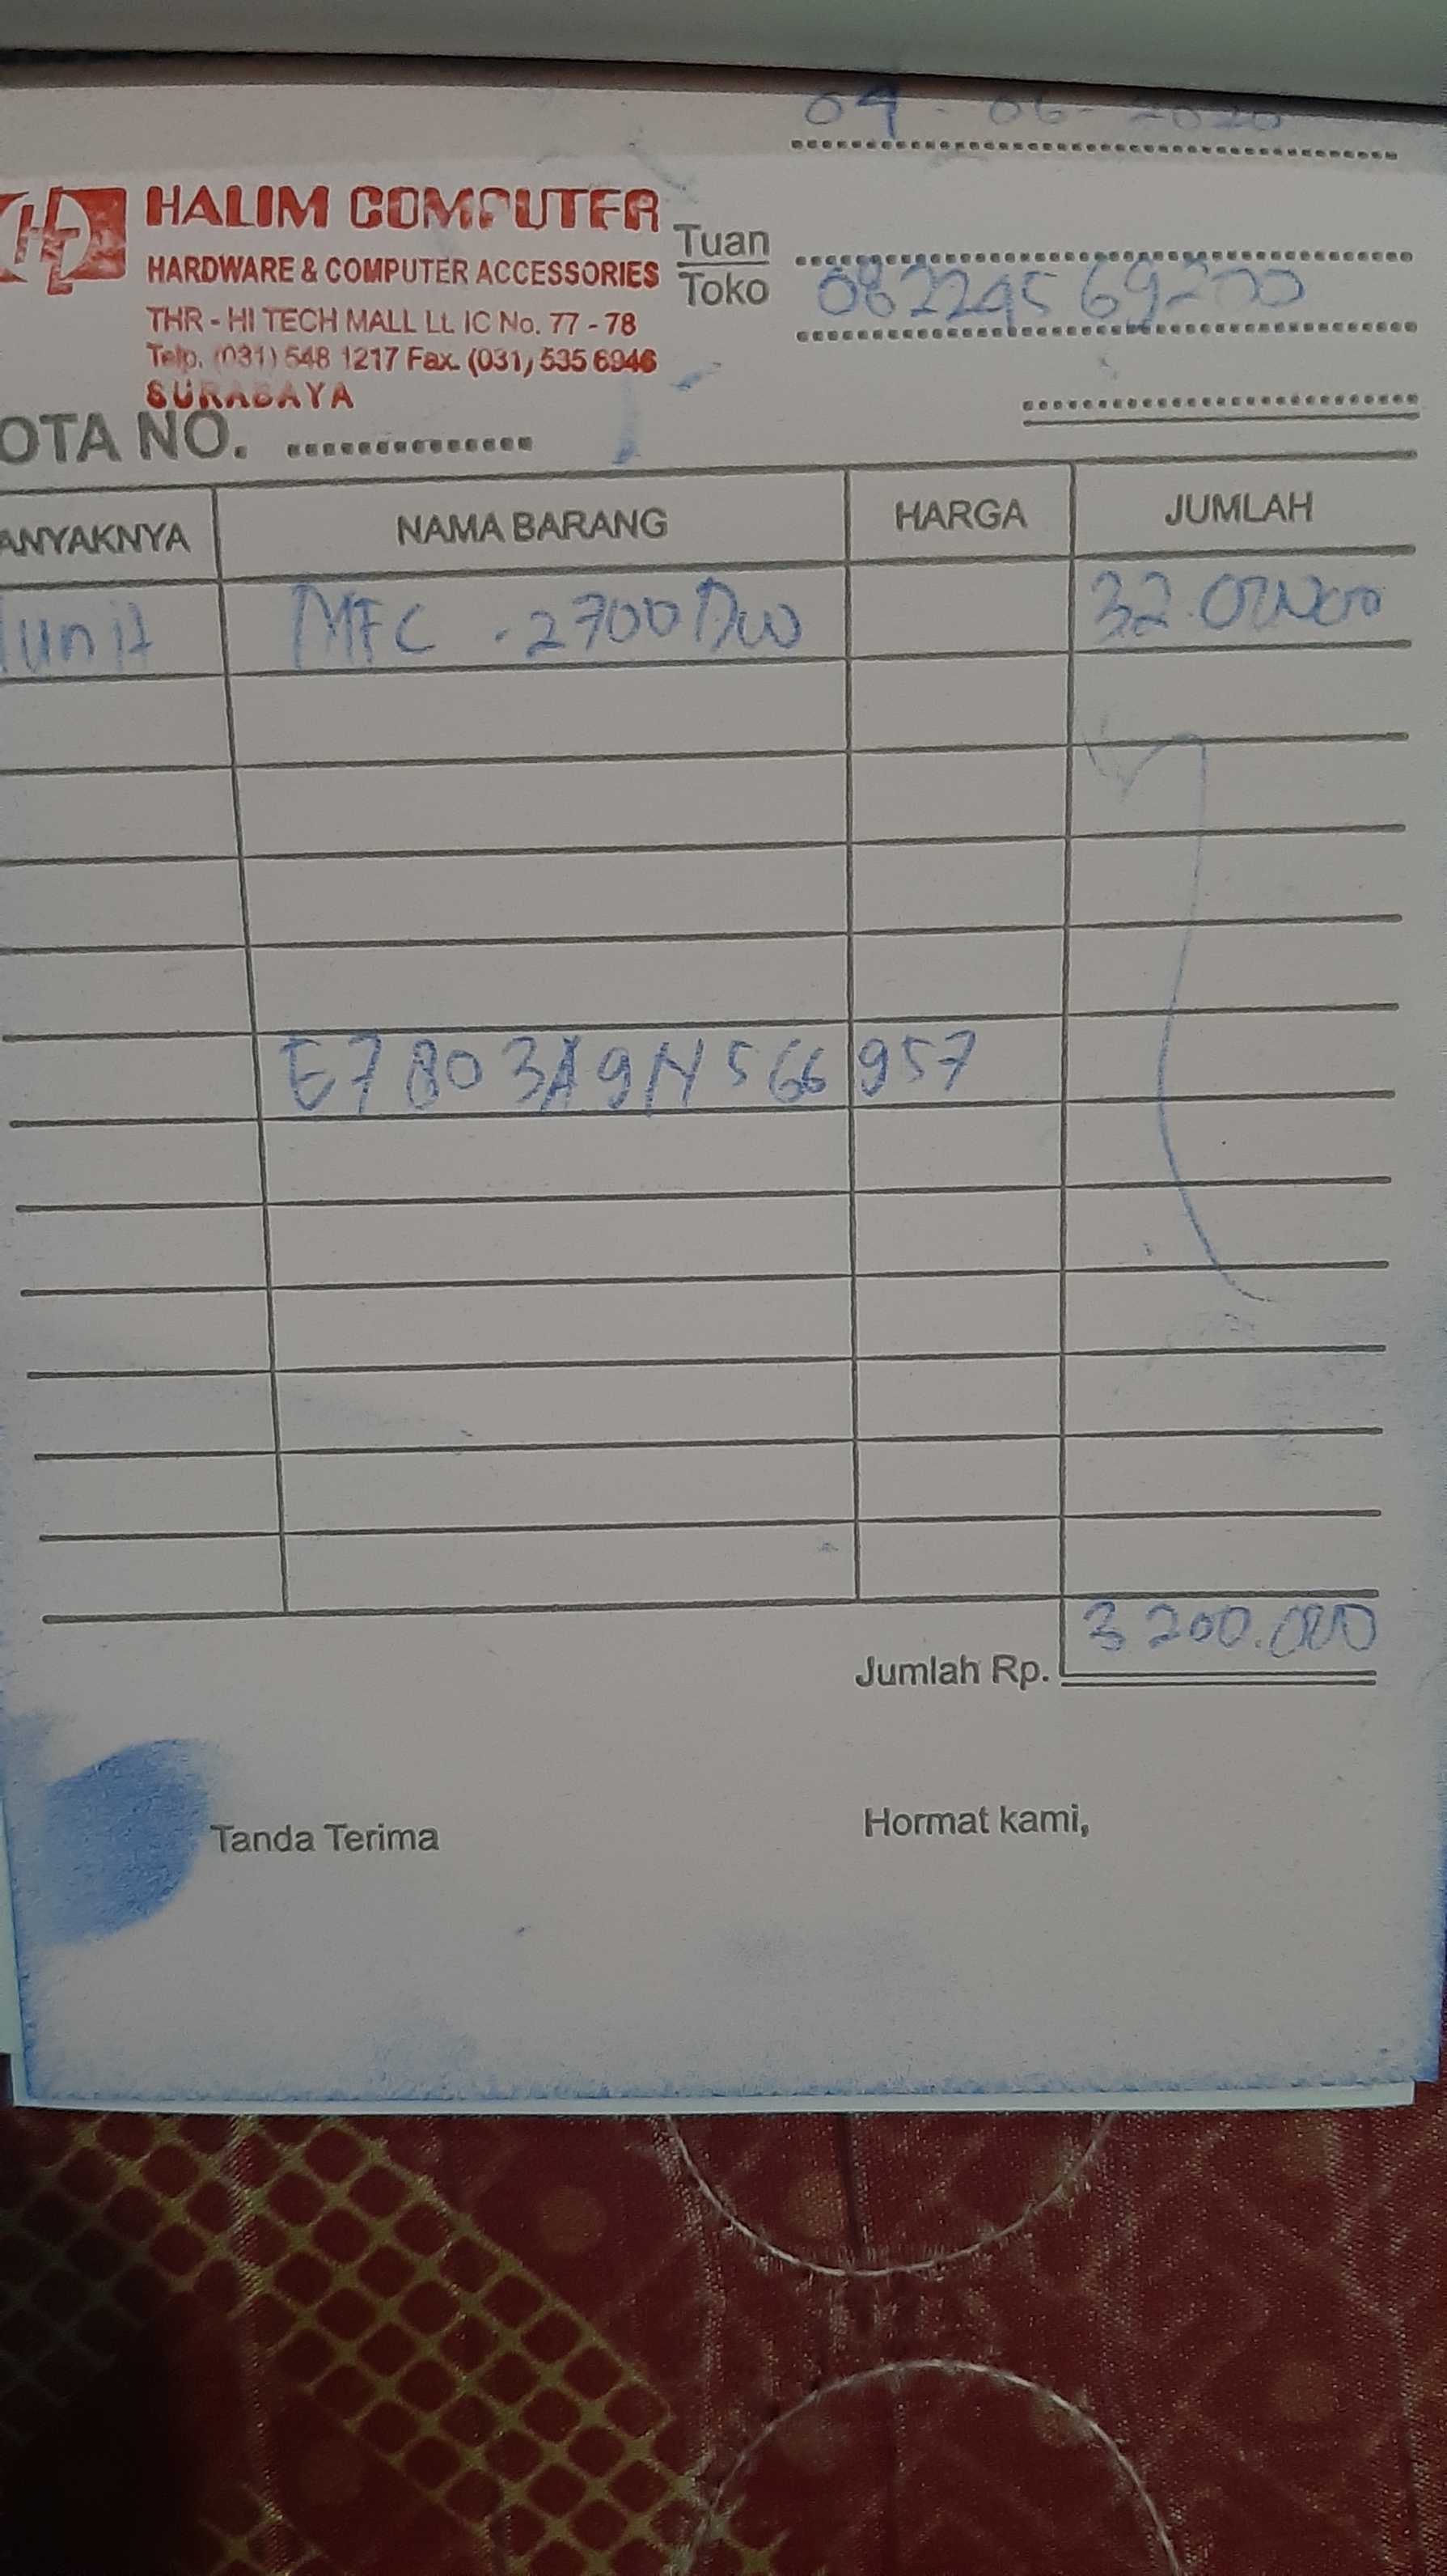 04 - 06 - 2020
HALIM COMPUTER
HARDWARE & COMPUTER ACCESSORIES
THR - HI TECH MALL LL IC No. 77 - 78
Telp. (031) 548 1217 Fax. (031) 535 6946
SURABAYA
Tuan
Toko
08224569200
OTA NO.
ANYAKNYA NAMA BARANG HARGA JUMLAH
1 unit MFC - 2700 DW
E7803A9N566957
Jumlah Rp. 3 200.000
Tanda Terima Hormat kami,